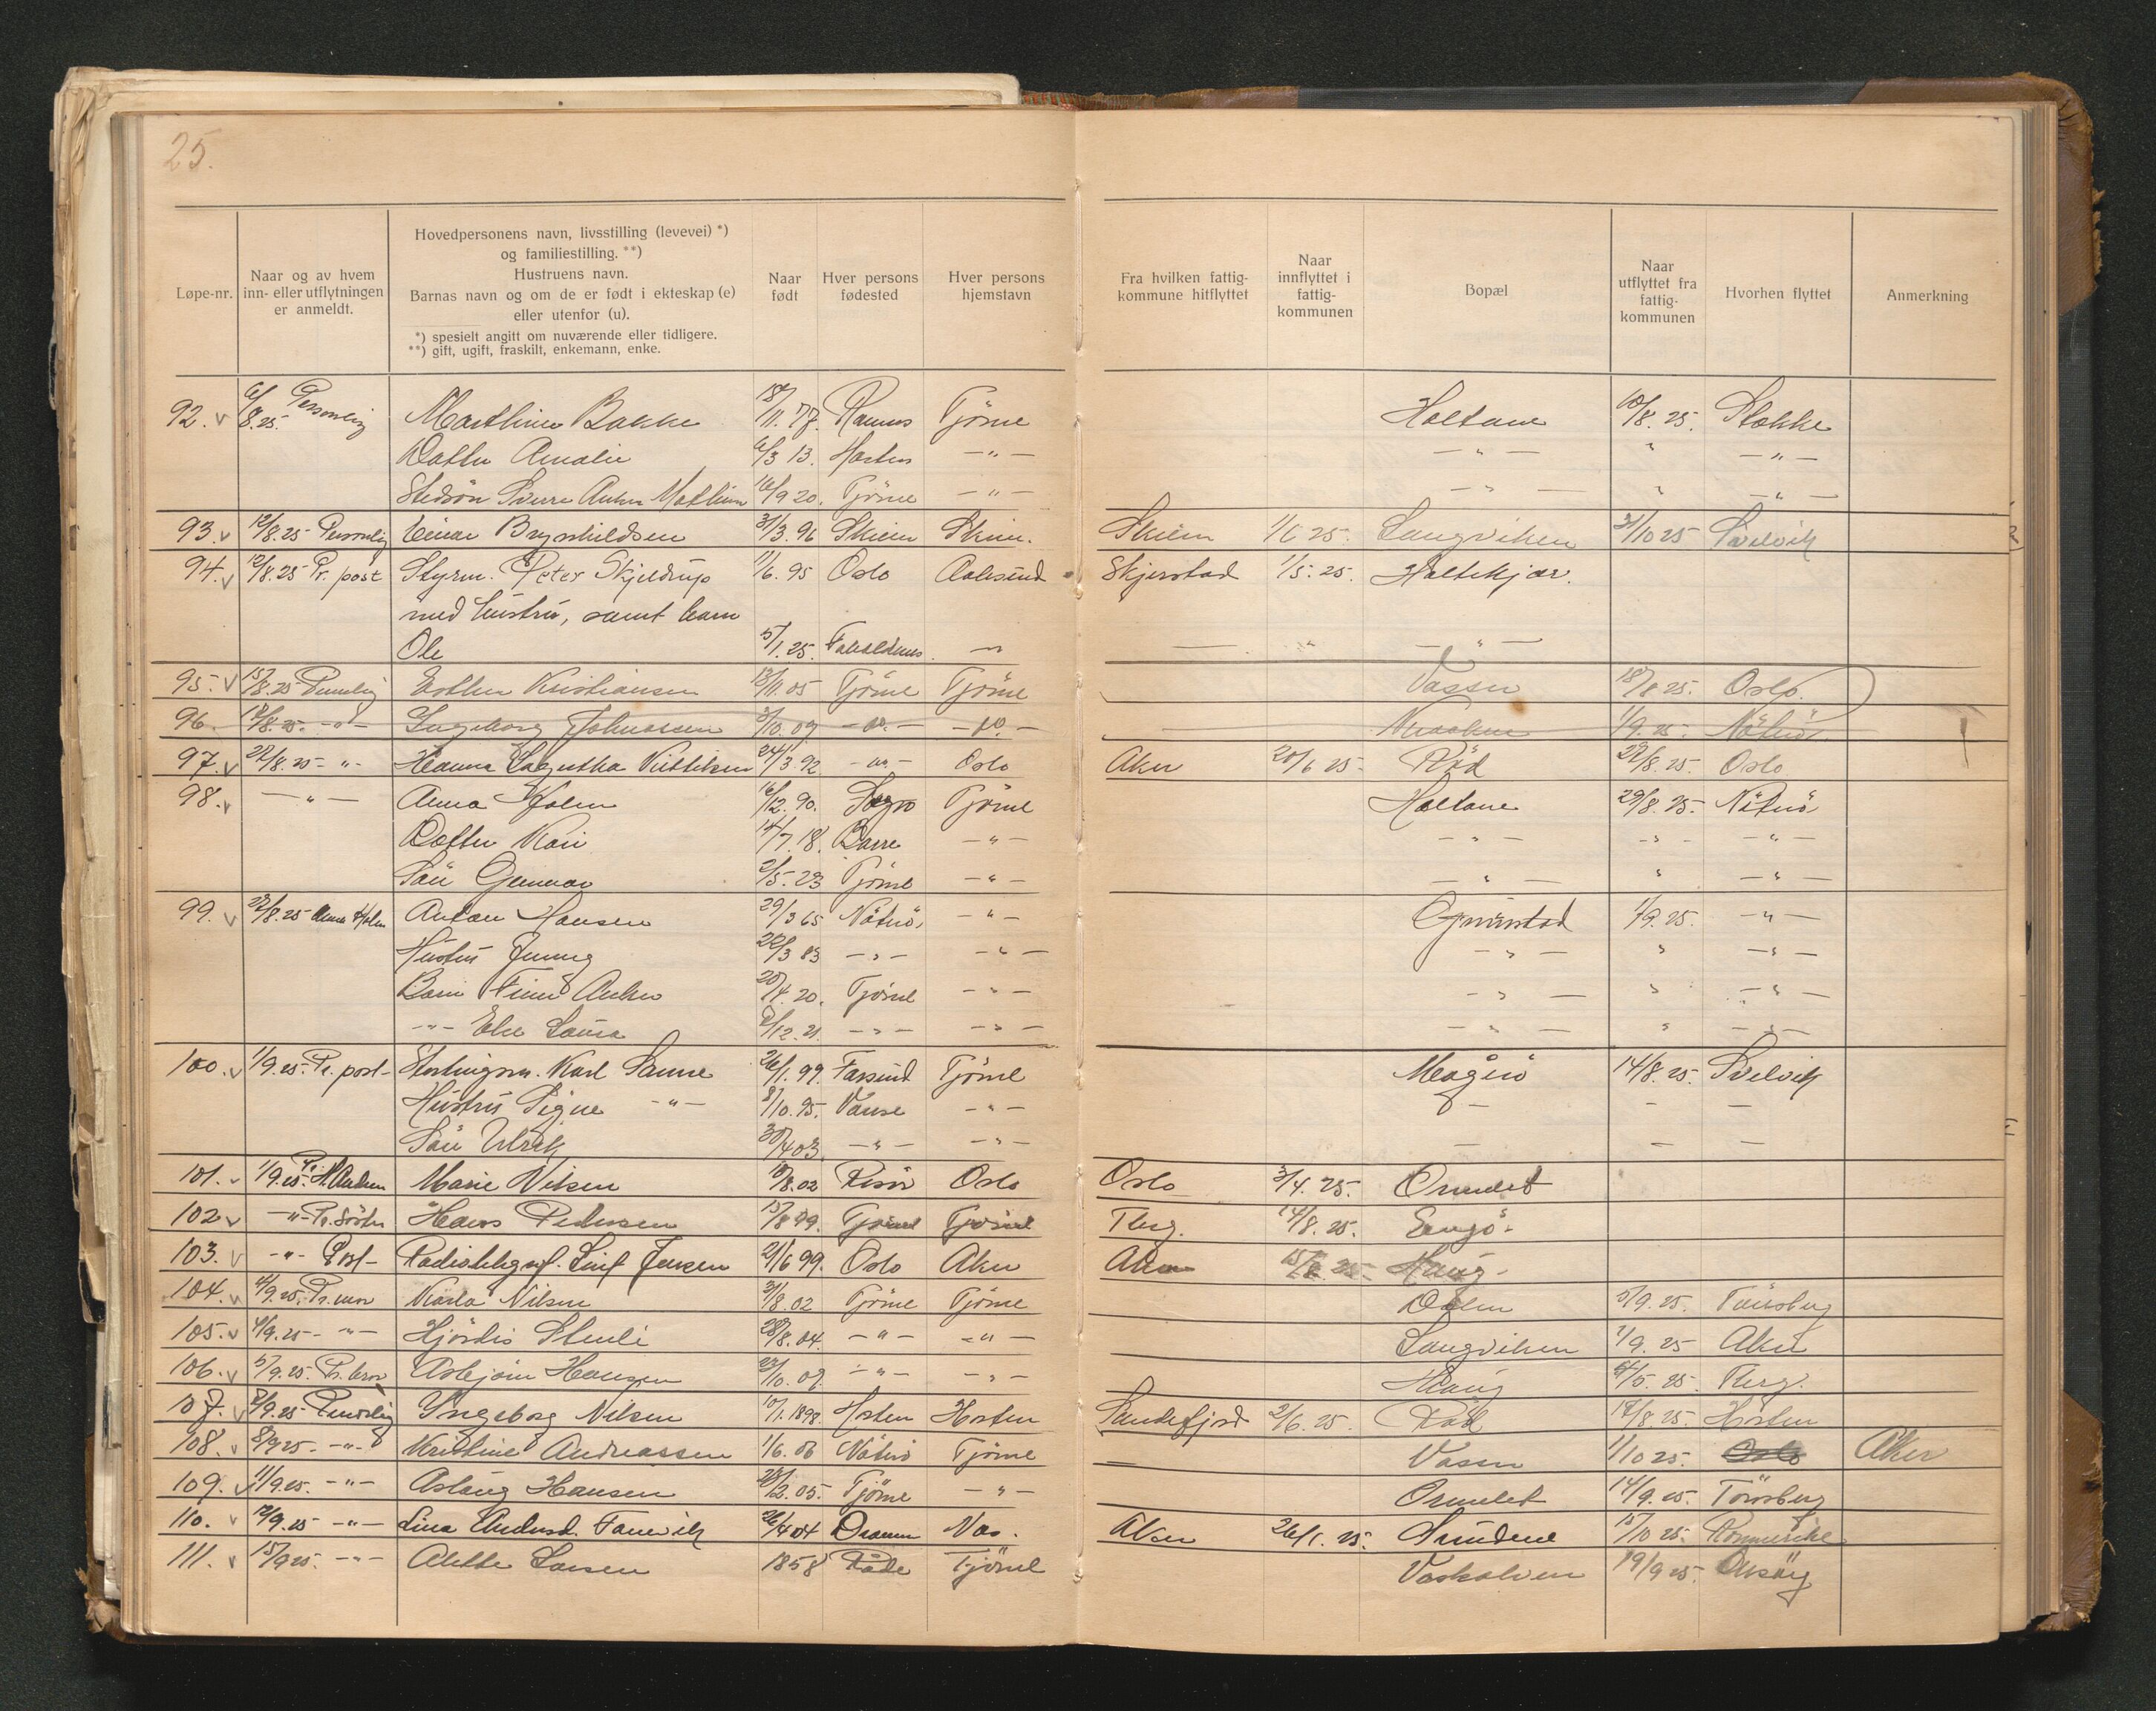 25.
Løpe-nr.
Naar og av hvem
inn- eller utflytningen
er anmeldt.
Hovedpersonens navn, livsstilling (levevei) *)
og familiestilling. **)
Hustruens navn.
Barnas navn og om de er født i ekteskap (e)
eller utenfor (u).
*) spesielt angitt om nuværende eller tidligere.
**) gift, ugift, fraskilt, enkemann, enke.
Naar
født
Hver persons
fødested
Hver persons
hjemstavn
Fra hvilken fattig-
kommune hitflyttet
Naar
innflyttet i
fattig-
kommunen
Bopæl
Naar
utflyttet fra
fattig-
kommunen
Hvorhen flyttet
Anmerkning
92. v 6/8.25. Personlig Bakke 18/11.77. Ramnes Tjöme Holtane 10/8.25. Stokke
Datter Amalie 6/3 13. Horten -"- -"- " -"-
Stedsön Sverre Anker 16/9 20. Tjöme -"- -"- " -"-
93. v 12/8.25 Personlig Einar Brynhildsen 31/3.96 Skien Skien. Skien 1/6 25. Langviken 31/10 25 Svelvik
94. v 12/8.25 Pr. post Styrm. Peter Skjeldrup 1/6.95 Oslo Aalesund Skjerstad 1/5.25. Holtekjær.
med hustru, samt barn
Ole 5/1.25. -"- -"-
95. v 15/8.25 Personlig Esther Kristiansen 13/11.05 Tjöme Tjöme Vasser 18/8 25. Oslo.
96. 17/8.25. -"- Ingeborg Johnassen 3/10.07 -"- -"- 1/9.25. Nötterö
97. v 22/8.25 -"- Hanna 24/3.92 -"- Oslo Aker 20/6 25. Röd 29/8.25. Oslo
98. v -"- Anna Holm 6/12.90. Tjöme Holtane 29/8.25. Nötterö
Datter Kari 14/7.18. Borre -"- -"- -"- -"-
Sön Gunnar 2/5.23 Tjöme -"- -"- " -"-
99. v 22/8.25 Anna Holm Anton Hansen 29/3 65 Nötterö -"- 1/9.25. -"-
Hustru Jenny 22/3 83 -"- -"- -"- " -"-
Barn Finn Anker 20/4.20. Tjöme -"- -"- " -"-
-"- Else Laura /12.21. -"- -"- -"- " -"-
100. v 1/9.25. Pr. post Karl Sanne 26/1.99. Farsund Tjöme Magerö 14/8.25. Svelvik
Hustru Signe -"- 8/10.95. Vanse -"- - - -
Sön Ulrik 30/4 03. -"- -"- - - -
101. v 1/9.25. Pr. Marie Nilsen 10/8.02 Risör Oslo Oslo 3/4.25. Ormelet
102 v -"- Pr. Söster Hans Pedersen 15/8 99. Tjöme Tjöme Tbrg. 14/8.25. Engö
103. v -"- Post Radiotelegraf. Leif Jensen 21/6 99. Oslo Aker Aker 15/ 25 Haug
104. v 4/9.25. Pr. mor Karla Nilsen 31/8.02 Tjöme Tjöme Dalen 5/9.25. Tönsberg
105. v 4/9.25 -"- Hjördis 28/8.04. -"- -"- Langviken 1/9.25 Aker
106. v 5/9.25. Pr. bror Asbjörn Hansen 23/10.07 -"- -"- Haug 4/5.25. Tbrg.
107. v 8/9.25 Personlig Yngeborg Nilsen 10/1.1898. Horten Horten Sandefjord 2/6.25. Röd 17/8.25. Horten
108. v 8/9 25. -"- Kristine Andreassen 1/6.06 Nötterö Tjöme Vasser 1/10 25. Oslo Aker
109. v 11/9.25. -"- Aslaug Hansen 28/12.05. Tjöme -"- Ormelet 14/9.25. Tönsberg
110. v 12/9.25 -"- Lina 26/4 04 Dramm Nes. Aker 26/1.25. Grundene 15/10 25. Romerike
111. v 15/9 25. -"- Alette Larsen 1858 Råde Tjöme Vaskalven 19/9 25.